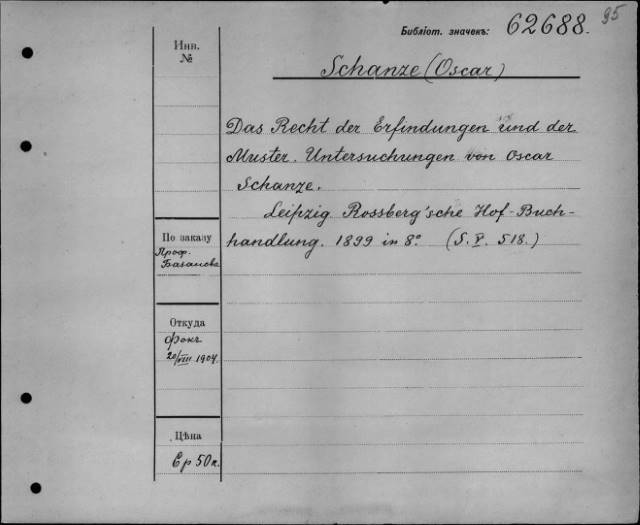 95
Библіот. значекъ: 62688.
Инв.
№
Schanze (Oscar)
Das Recht der Erfindungen und der
Muster. Untersuchungen von Oscar
Schanze.
Leipzig Rossberg'sche Hof-Buch-
handlung. 1899 in 8º (S. V. 518.)
По заказу
Проф.
Базанова
Откуда
Фокъ
20/VIII 1904.
Цѣна
6 р 50 к.